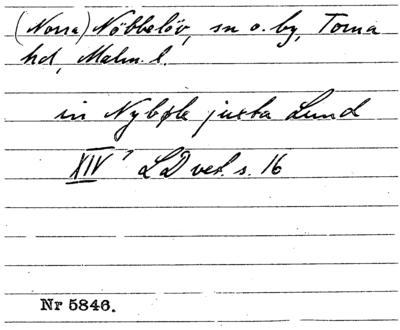 (Norra) Nöbbelöv, sn o. by, Torna
hd, Malm. l.
in Nyböle juxta Lund
XIV? LD vet. s. 16
Nr 5846.